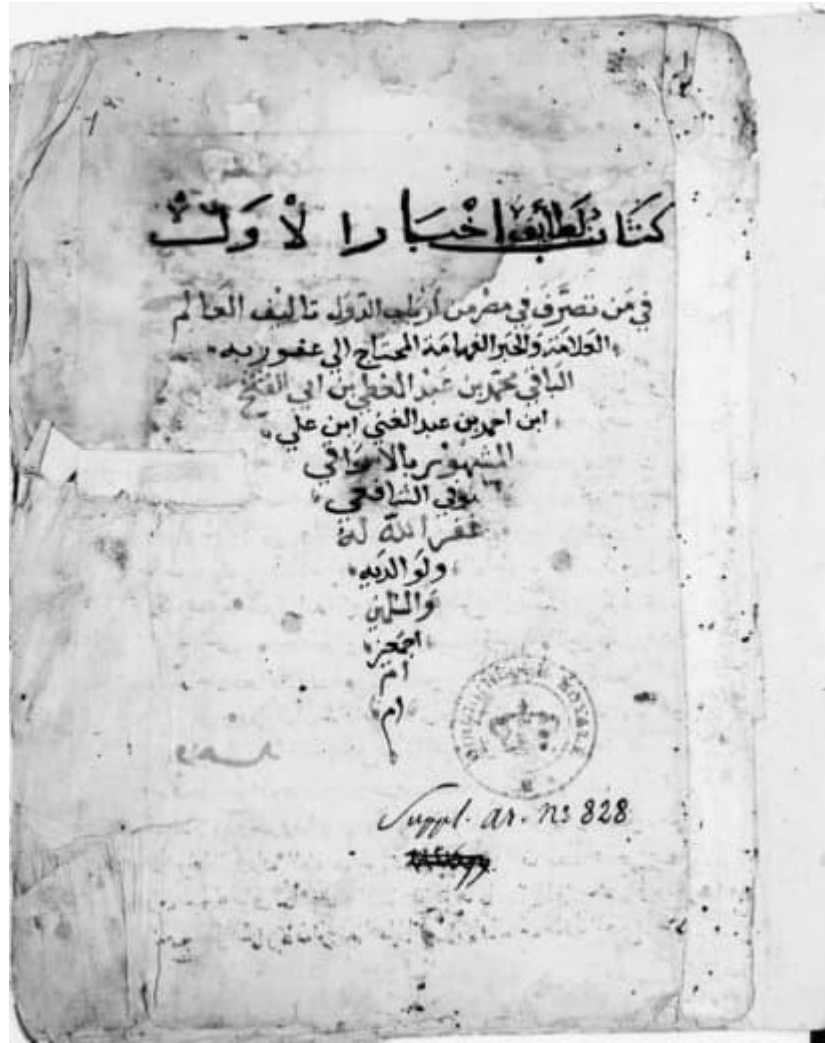 كتاب لطائف اخبار الأول
في من تصرف في مصر من أرباب الدول تاليف العالم
العلامة والحبر الفهامة المحتاج الى عفو ربه
الباقي محمد بن عبد المعطي بن ابي الفتح
ابن احمد بن عبد الغني ابن علي
المشهور بالاسحاقي
الشافعي
غفر الله له
ولوالديه
والمسلمين
اجمعين
ام
ام
BIBLIOTHEQUE ROYALE
Suppl. ar. No 828